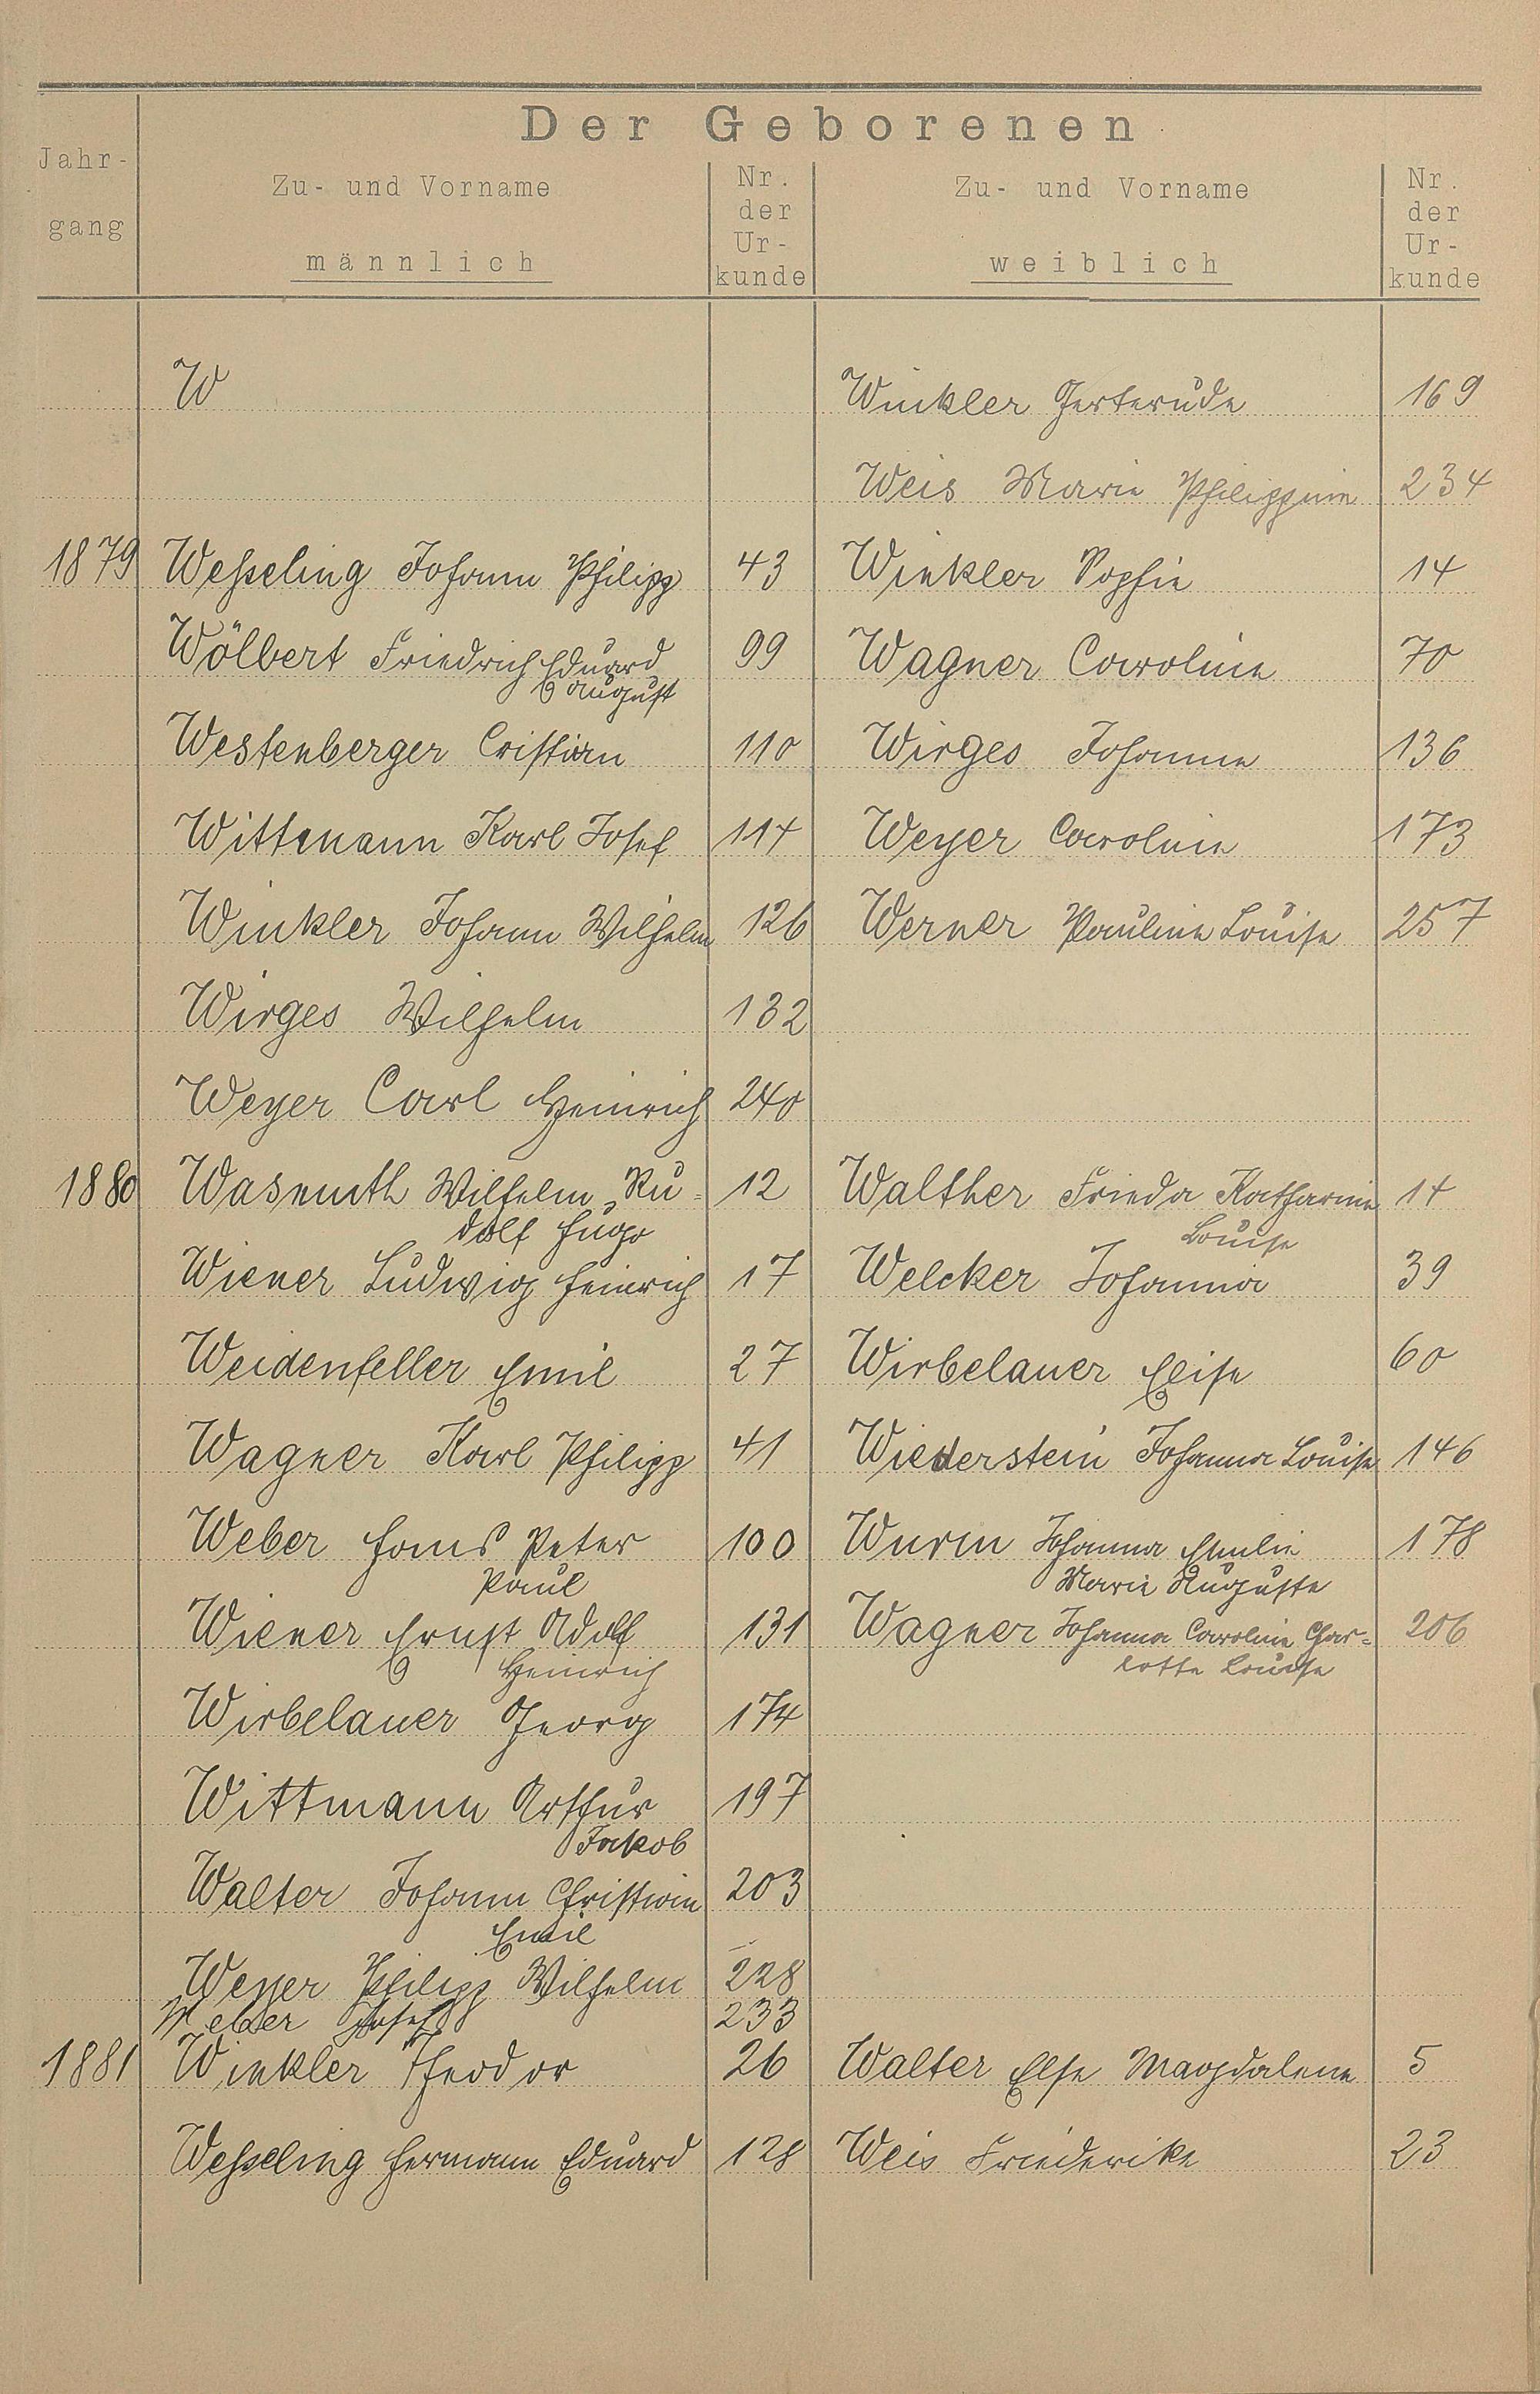 Der Geborenen
Jahr-
gang
Zu- und Vorname
männlich
Nr.
der
Ur-
kunde
Zu- und Vorname
weiblich
Nr.
der
Ur-
kunde
W Winkler Gerterude 169
Weis Marie Philippine 234
1879 Weßeling Johann Philipp 43 Winkler Sophie 14
Wölbert Friedrich Eduard 99 Wagner Caroline 70
August
Westenberger Cristian 110 Wirges Johanne 136
Wittmann Karl Josef 114 Weyer Caroline 173
Winkler Johann Wilhelm 126 Werner Pauline Louise 257
Wirges Wilhelm 132
Weyer Carl Heinrich 240
1880 Wasmuth Wilhelm Ru= 12 Walther Frieda Katharine 14
dolf Hugo Louise
Wiener Ludwig Heinrich 17 Welcker Johanna 39
Weidenfeller Emil 27 Wirbelauer Elise 60
Wagner Karl Philipp 41 Wiederstein Johanna Louise 146
Weber Hans Peter 100 Wurm Johanna Emilie 178
Paul Marie Auguste
Wiener Ernst Adolf 131 Wagner Johanna Caroline Char= 206
Heinrich lotte Louise
Wirbelauer Georg 174
Wittmann Arthur 197
Jakob
Walter Johann Christian 203
Emil
Weyer Philipp Wilhelm 228
Weber Josef 233
1881 Winkler Theodor 26 Walter Else Magdalene 5
Weßeling Hermann Eduard 128 Weis Friederike 23